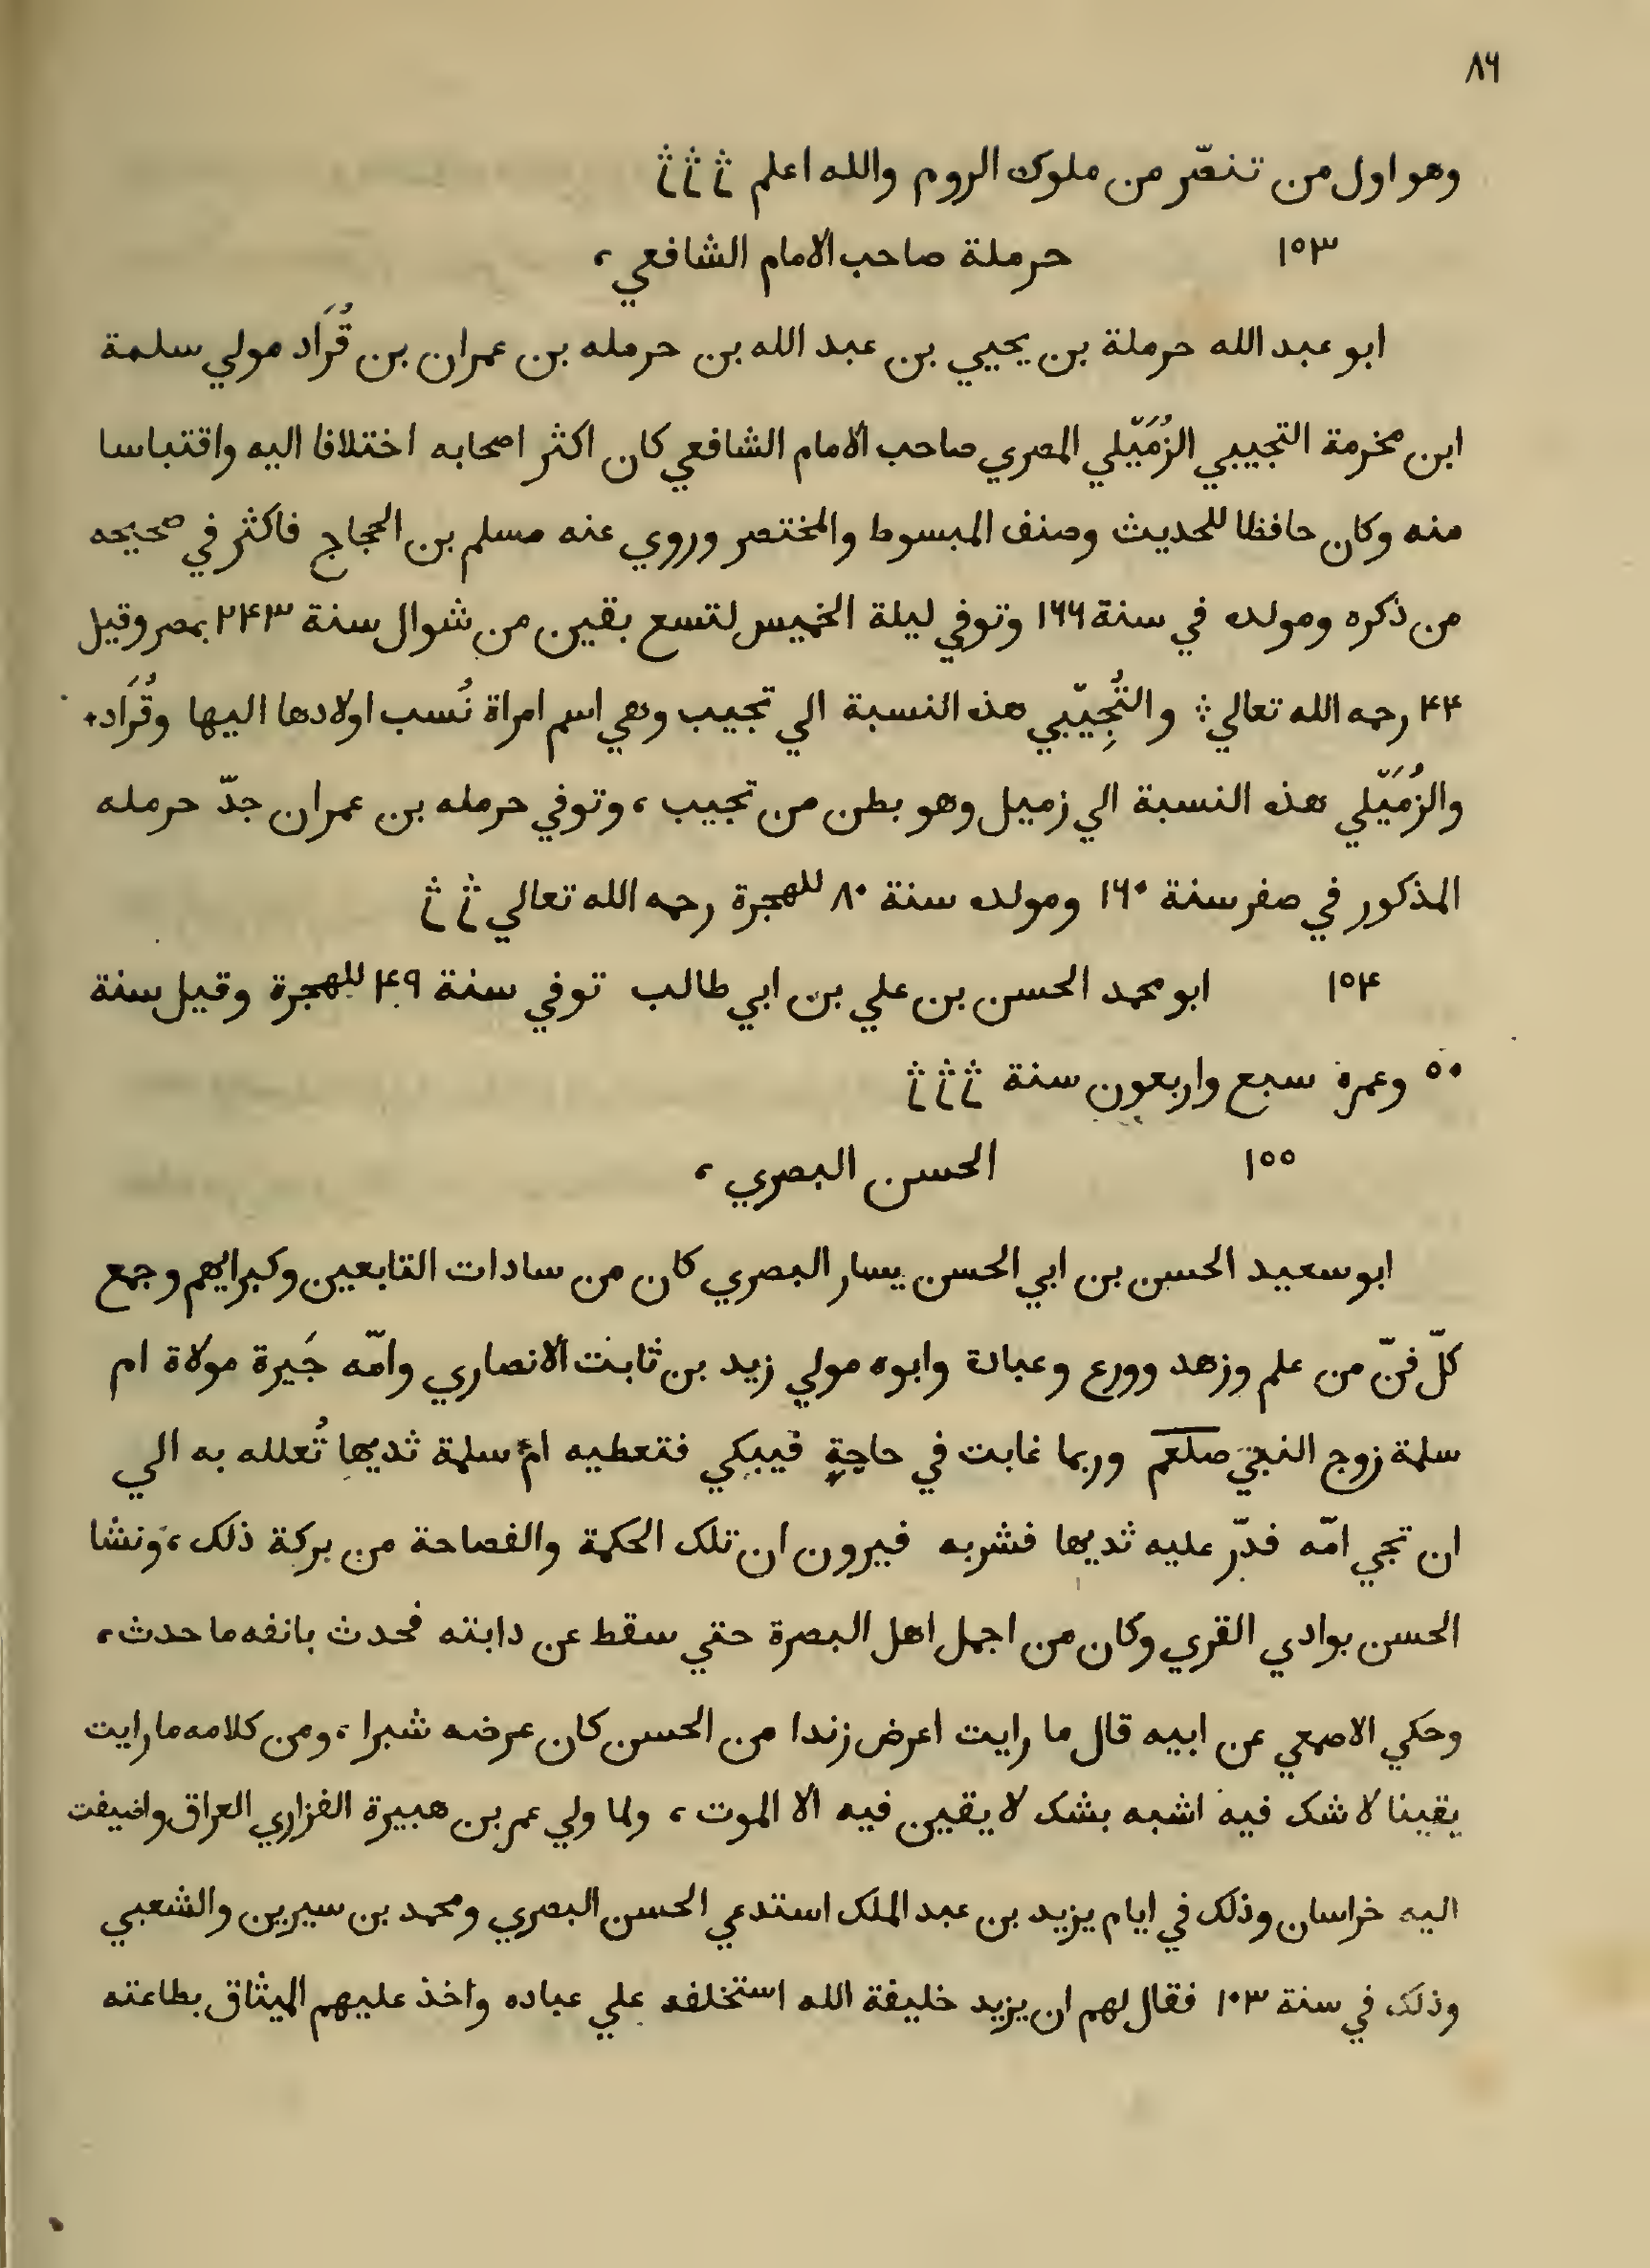 ٨٦
وهو اول من تنصّر من ملوك الروم والله اعلم
١٥٣ حرملة صاحب الامام الشافعي ،
ابو عبد الله حرملة بن يحيي بن عبد الله بن حرمله بن عمران بن قُرَاد مولي سلمة
ابن مخرمة التجيبي الزُمَيّلي المصري صاحب الامام الشافعي كان اكثر اصحابه اختلافا اليه واقتباسا
منه وكان حافظا للحديث وصنف المبسوط والمختصر وروي عنه مسلم بن الحجاج فاكثر في صحيحه
من ذكره ومولده في سنة ١٦٦ وتوفي ليلة الخميس لتسع بقين من شوال سنة ٢٤٣ بمصر وقيل
٤٤ رحمه الله تعالي والتُجِيّبي هذه النسبة الي تجيب وهي اسم امراة نُسب اولادها اليها وقُرَاد،
والزُمَيّلي هذه النسبة الي زميل وهو بطن من تجيب ، وتوفي حرمله بن عمران جدّ حرمله
المذكور في صفر سنة ١٦٠ ومولده سنة ٨٠ للهجرة رحمه الله تعالي
١٥٤ ابو محمد الحسن بن علي بن ابي طالب توفي سنة ٤٩ للهجرة وقيل سنة
٥٠ وعمره سبع واربعون سنة
١٥٥ الحسن البصري ،
ابو سعيد الحسن بن ابي الحسن يسار البصري كان من سادات التابعين وكبرايهم وجمع
كلّ فنّ من علم وزهد وورع وعبادة وابوه مولي زيد بن ثابت الانصاري وامّه خَيرة مولاة ام
سلمة زوج النبي صلعم وربما غابت في حاجةٍ فيبكي فتعطيه امّ سلمة ثديها تُعلله به الي
ان تجي امّه فدّر عليه ثديها فشربه فيرون ان تلك الحكمة والفصاحة من بركة ذلك ، ونشا
الحسن بوادي القري وكان من اجمل اهل البصرة حتي سقط عن دابته فحدث بانفه ما حدث ،
وحكي الاصمعي عن ابيه قال ما رايت اعرض زندا من الحسن كان عرضه شبرا ، ومن كلامه ما رايت
يقينا لا شك فيه اشبه بشك لا يقين فيه الا الموت ، ولما ولي عمر بن هبيرة الفزاري العراق واضيفت
اليه خراسان وذلك في ايام يزيد بن عبد الملك استدعي الحسن البصري ومحمد بن سيرين والشعبي
وذلك في سنة ١٠٣ فقال لهم ان يزيد خليفة الله استخلفه علي عباده واخذ عليهم الميثاق بطاعته